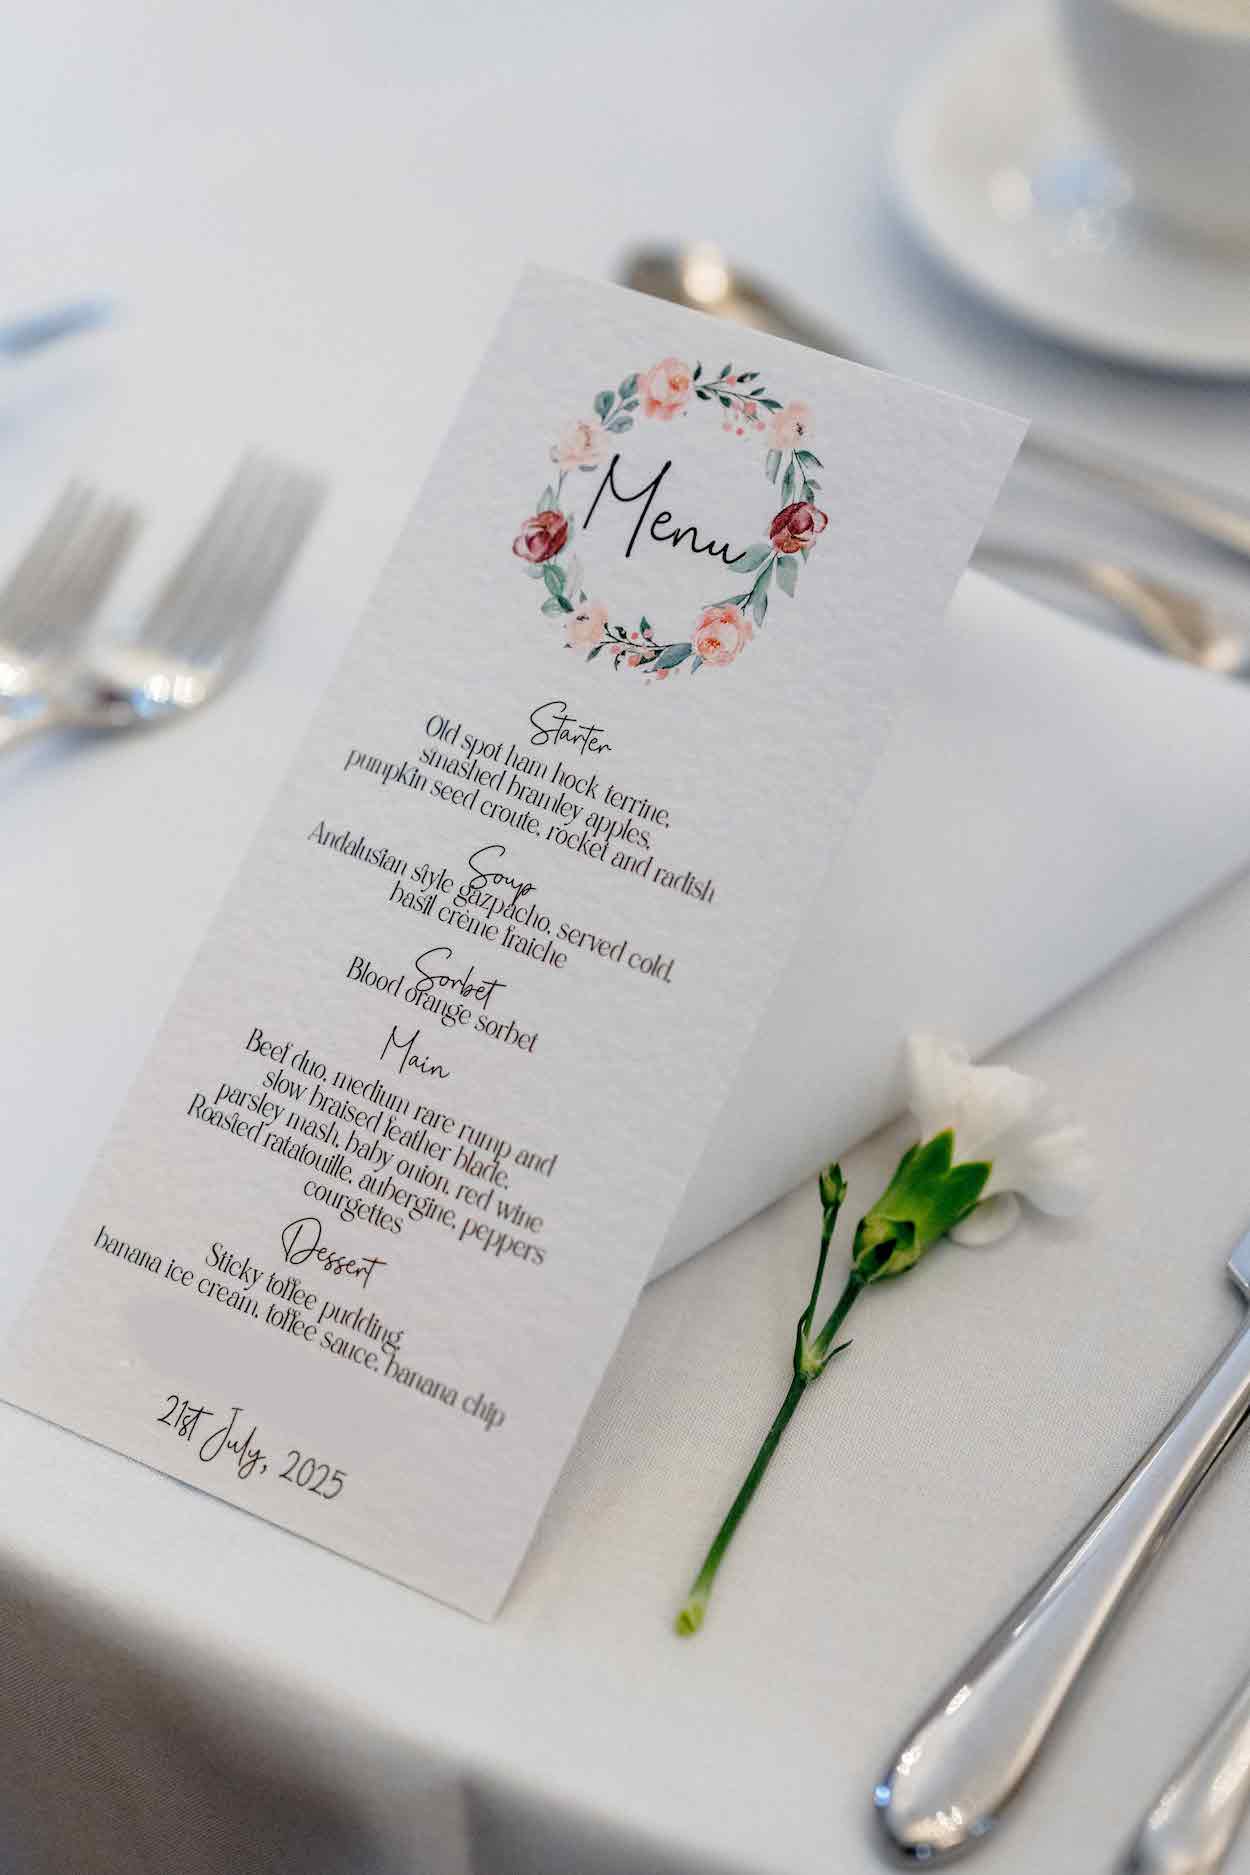 Menu
Starter
Old spot ham hock terrine,
smashed bramley apples,
pumpkin seed croute, rocket and radish
Soup
Andalusian style gazpacho, served cold,
basil crème fraiche
Sorbet
Blood orange sorbet
Main
Beef duo, medium rare rump and
slow braised feather blade,
parsley mash, baby onion, red wine
Roasted ratatouille, aubergine, peppers
courgettes
Dessert
Sticky toffee pudding,
banana ice cream, toffee sauce, banana chip
21st July, 2025